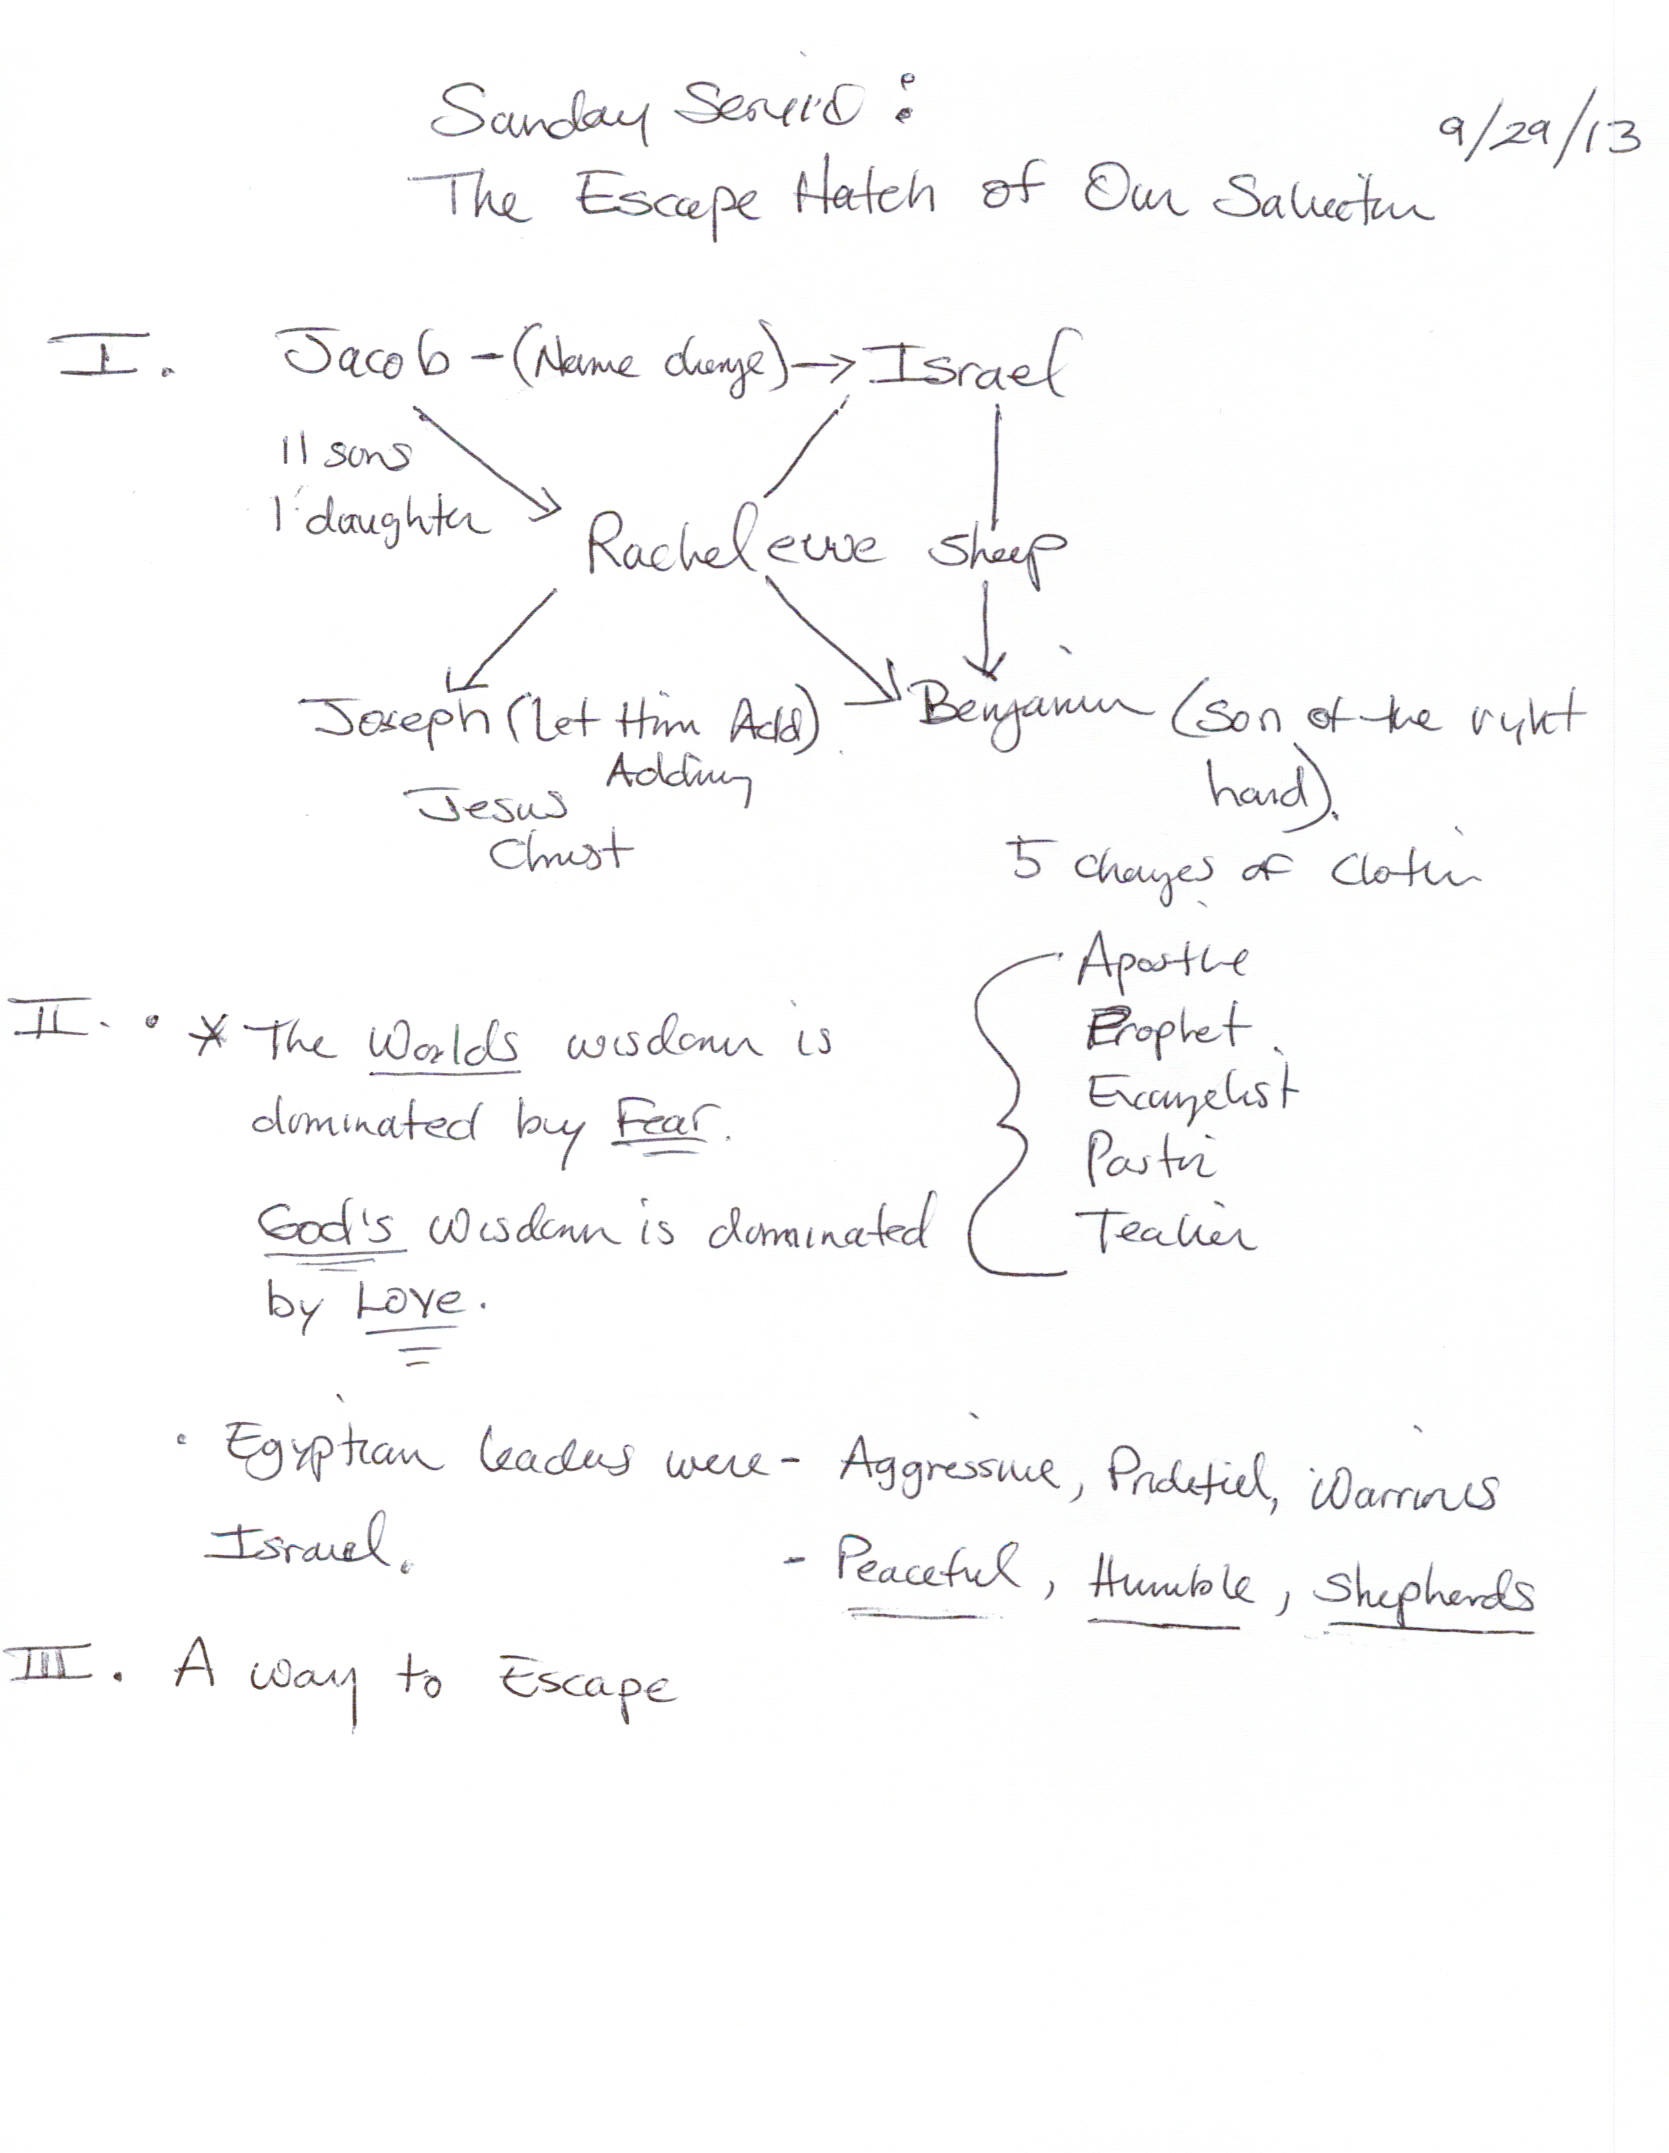 Sunday Service:
9/29/13
The Escape Hatch of Our Salvation
I. Jacob - (Name change) → Israel
11 sons
1 daughter
Rachel ewe sheep
Joseph (Let Him Add) → Benjamin (son of the right
Adding
hand).
Jesus
Christ
5 changes of Clothin
Apostle
Prophet
Evangelist
Pastor
Teacher
II. • * The Worlds wisdom is
dominated by Fear.
God's wisdom is dominated
by Love.
• Egyptian leaders were - Aggressive, Prideful, Warriors
Israel. - Peaceful, Humble, Shepherds
III. A way to Escape